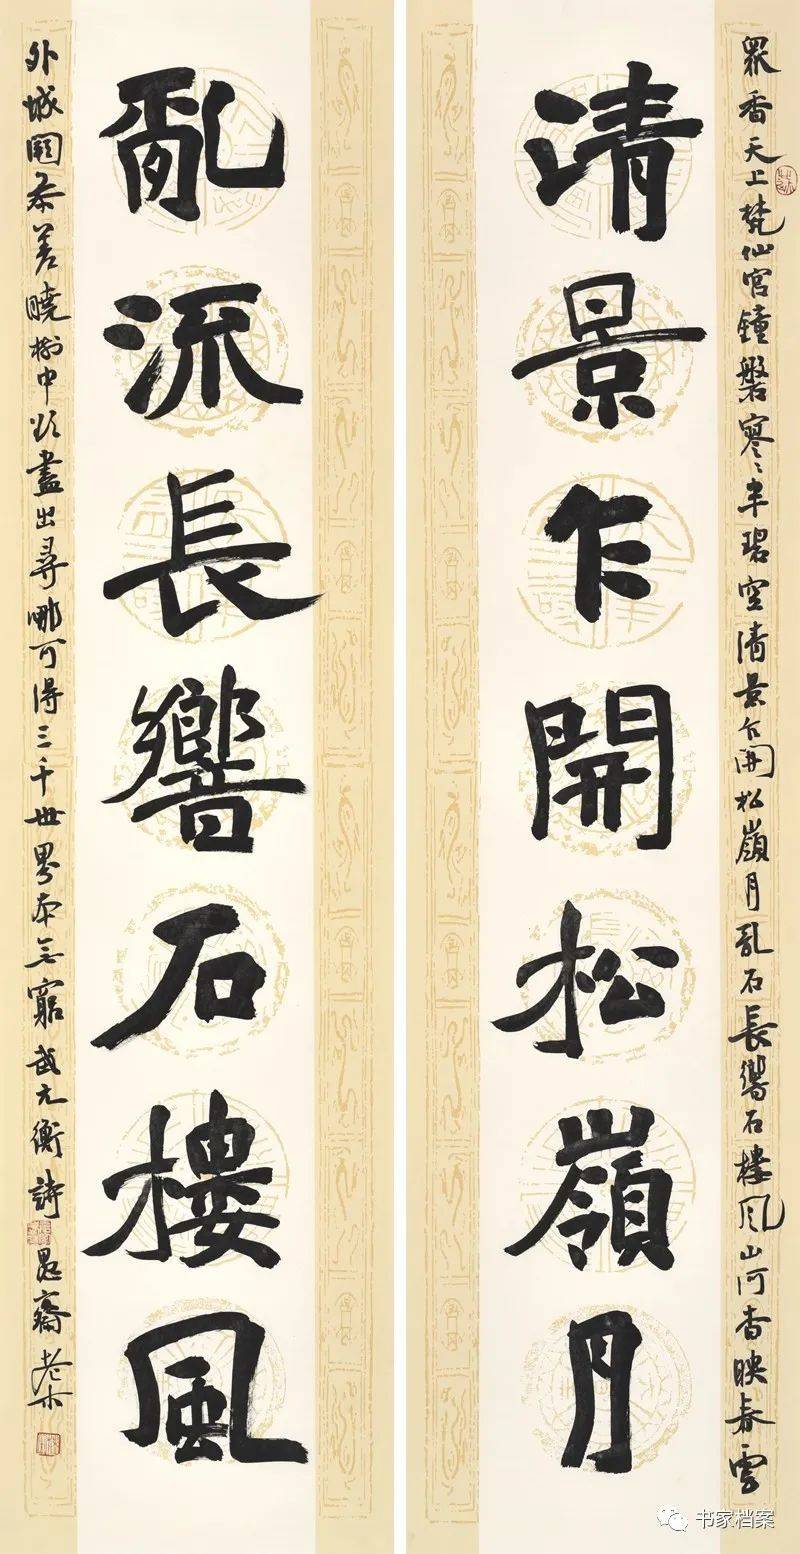 眾香天上梵仙宮鐘磬寒〻半碧空清景乍開松嶺月乱石長響石樓風山河杳映春雲
清景乍開松嶺月
亂流長響石樓風
外城闕参差曉樹中欲盡出尋哪可得三千世界本无窮武元衡詩愚齋老木
书家档案